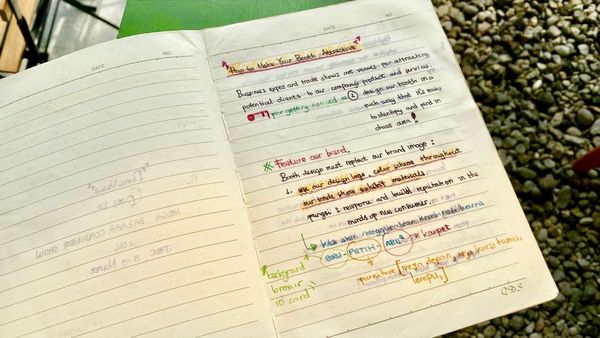 DATE
NO.
DATE
NO.
"How to Make Your Booth Attractive"
Business expos and trade shows are venues for attracting
potential clients to our company's product and services.
for getting noticed = ① design our booth in a
such way that it's easy
to identify and find in
chaos area!
※ Feature our brand.
Booth design must reflect our brand image :
1. use our design logo, color scheme throughout
our trade show exhibit materials.
reinforce and build reputation in the
minds of new costumer.
kita akan menggunakan kombinasi warna
BIRU - PUTIH - ABU² karpet
furniture [meja depan, kursi tamu,
lampu,]
"background
brosur
ID card"